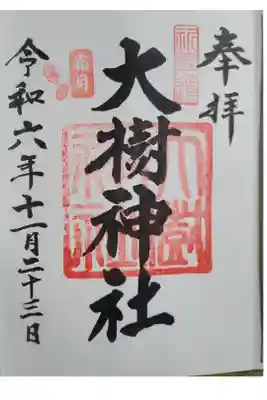 奉拝
大樹神社
令和六年十一月二十三日